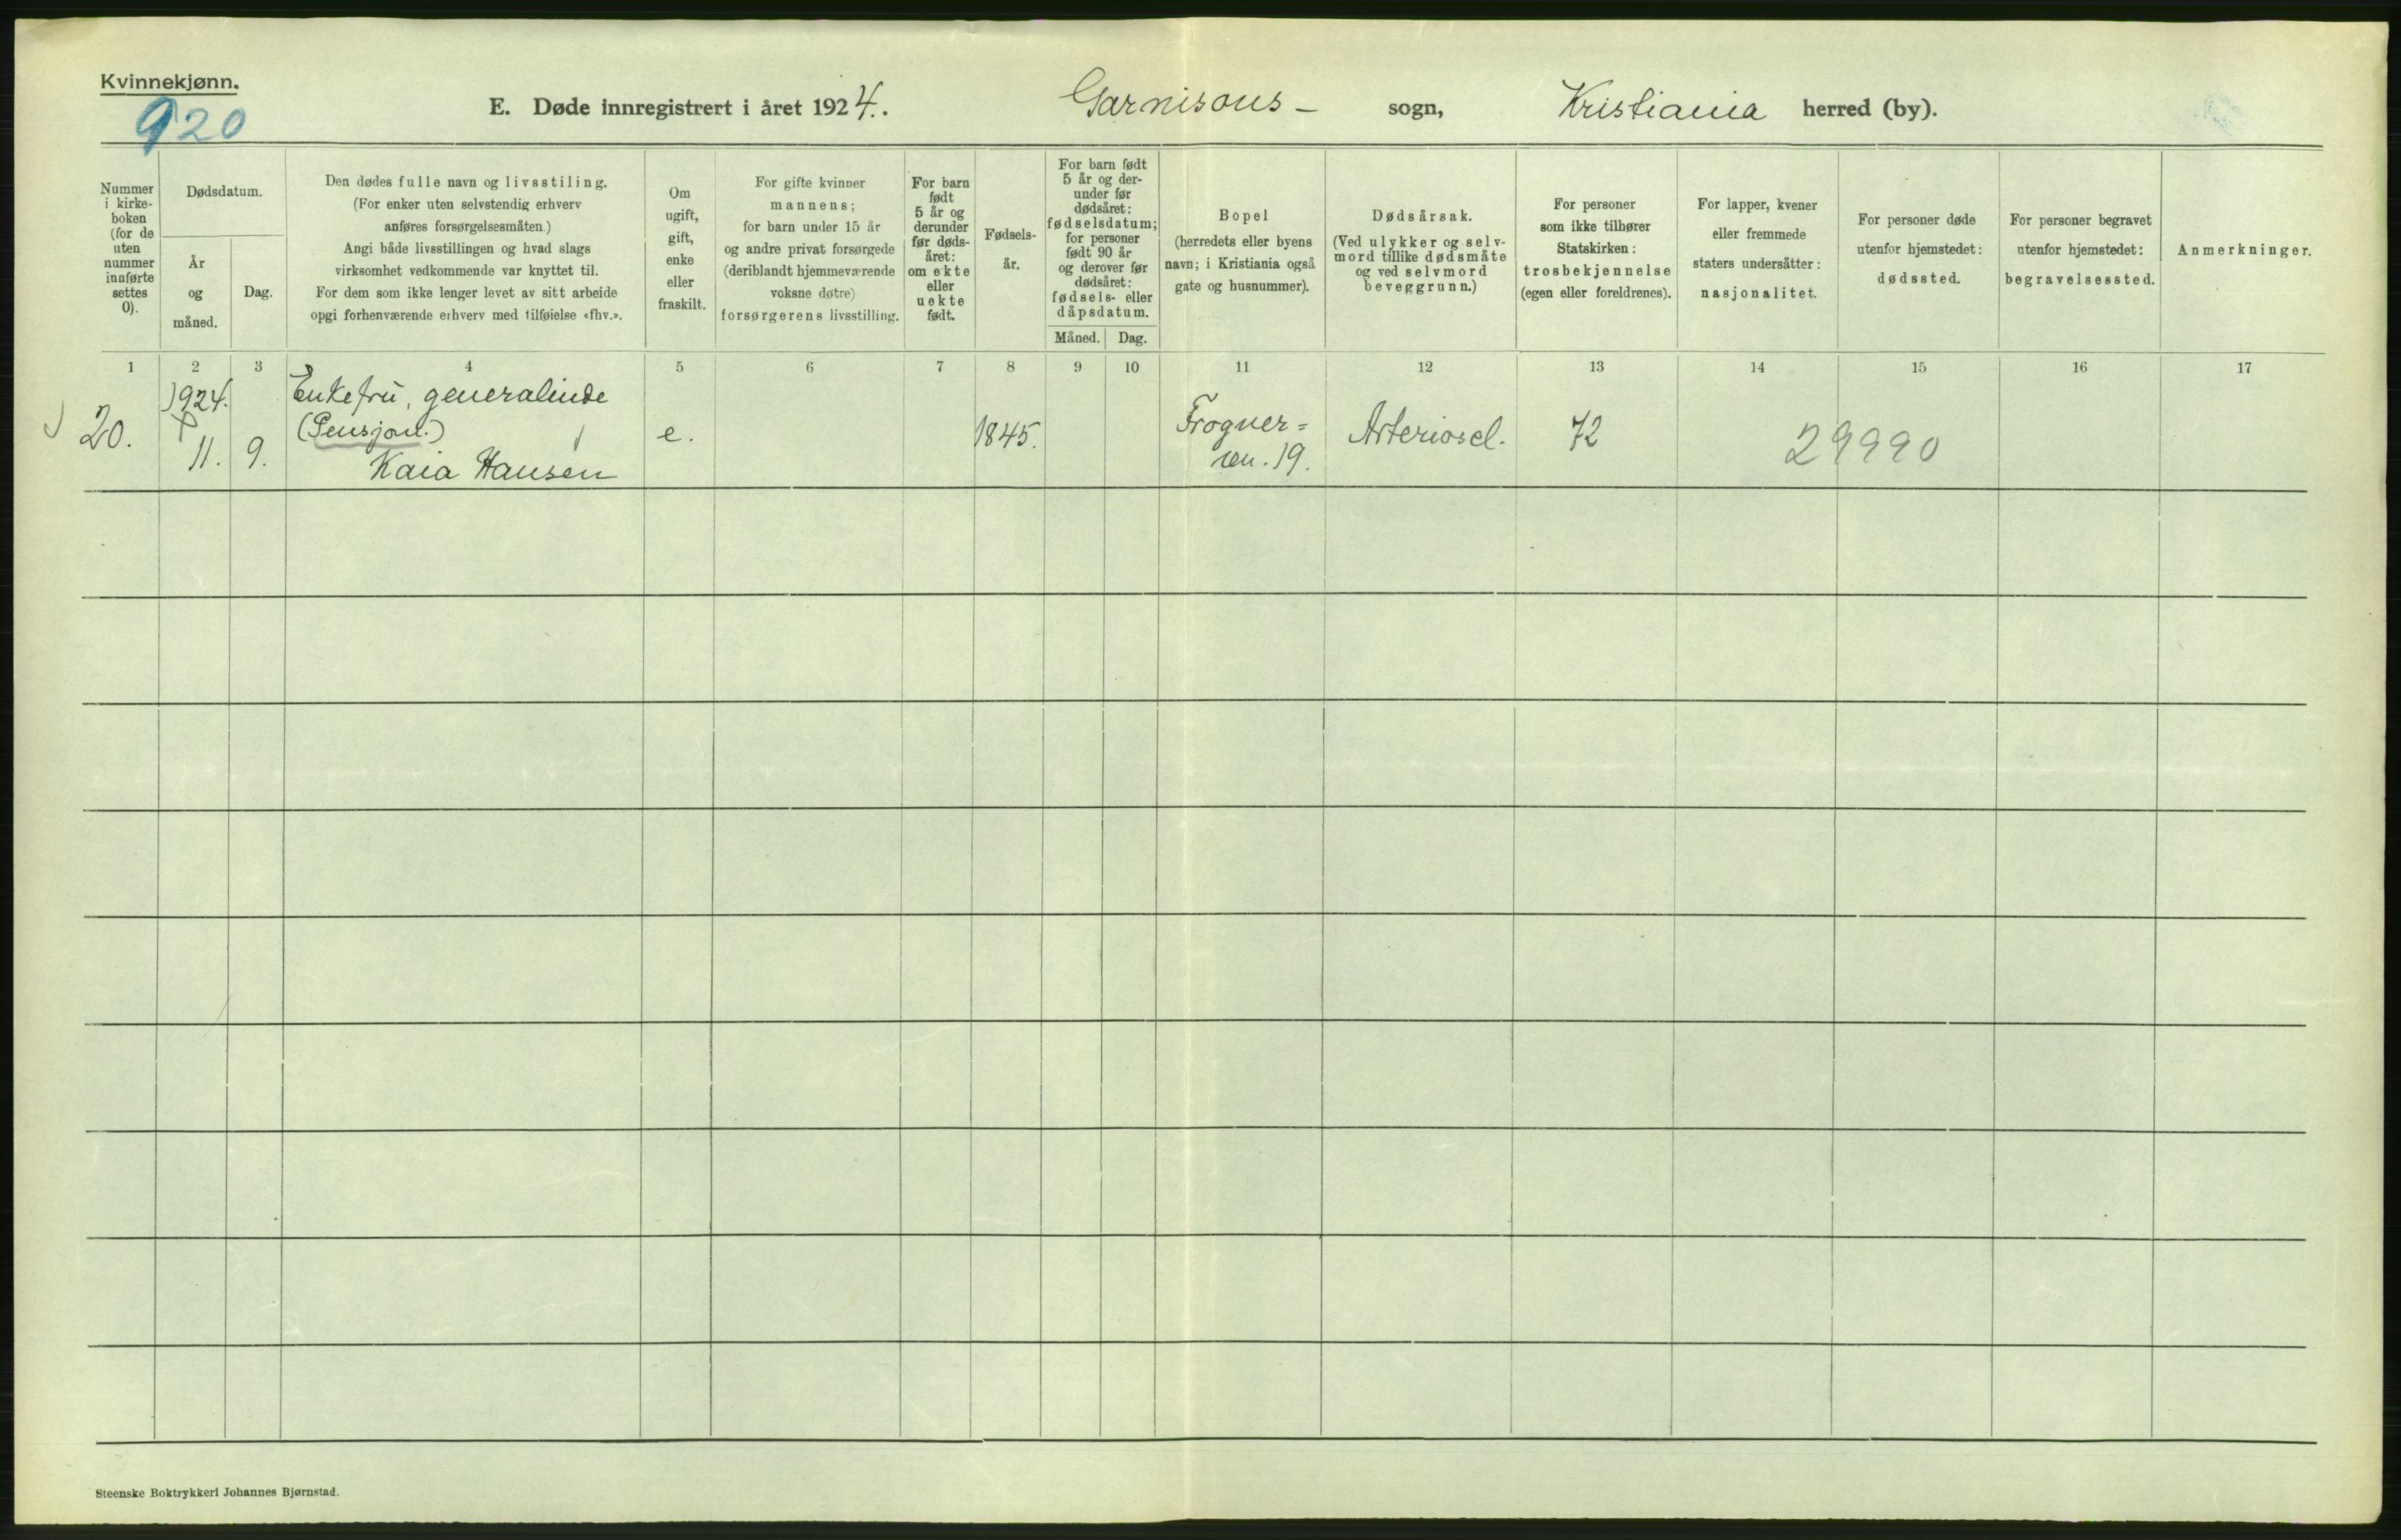 Kvinnekjønn.
920
E. Døde innregistrert i året 1924.
Garnisons- sogn,
Kristiania herred (by).
Nummer
i kirke-
boken
(for de
uten
nummer
innførte
settes
0).
Dødsdatum.
År
og
måned.
Dag.
Den dødes fulle navn og livsstiling.
(For enker uten selvstendig erhverv
anføres forsørgelsesmåten.)
Angi både livsstillingen og hvad slags
virksomhet vedkommende var knyttet til.
For dem som ikke lenger levet av sitt arbeide
opgi forhenværende erhverv med tilføielse «fhv.».
Om
ugift,
gift,
enke
eller
fraskilt.
For gifte kvinner
mannens;
for barn under 15 år
og andre privat forsørgede
(deriblandt hjemmeværende
voksne døtre)
forsørgerens livsstilling.
For barn
født
5 år og
derunder
før døds-
året:
om ekte
eller
uekte
født.
Fødsels-
år.
For barn født
5 år og der-
under før
dødsåret:
fødselsdatum;
for personer
født 90 år
og derover før
dødsåret:
fødsels- eller
dåpsdatum.
Måned. Dag.
Bopel
(herredets eller byens
navn; i Kristiania også
gate og husnummer).
Dødsårsak.
(Ved ulykker og selv-
mord tillike dødsmåte
og ved selvmord
beveggrunn.)
For personer
som ikke tilhører
Statskirken:
trosbekjennelse
(egen eller foreldrenes).
For lapper, kvener
eller fremmede
staters undersåtter:
nasjonalitet.
For personer døde
utenfor hjemstedet:
dødssted.
For personer begravet
utenfor hjemstedet:
begravelsessted.
Anmerkninger.
1 2 3 4 5 6 7 8 9 10 11 12 13 14 15 16 17
20.
1924.
11. 9.
Enkefru, generalinde
(Pensjon.)
Kaia Hansen
e.
1845.
Frogner=
ven. 19.
Arterioscl.
72
29990
Steenske Boktrykkeri Johannes Bjørnstad.